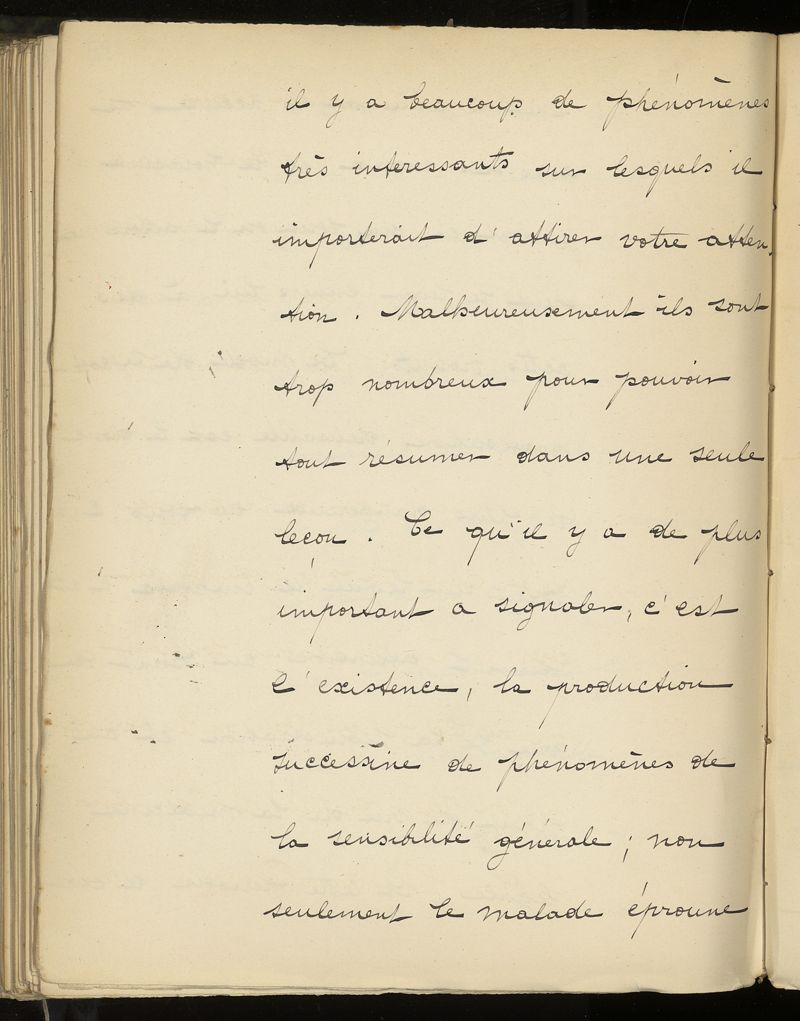 il y a beaucoup de phénomènes
très interessants sur lesquels il
importerait d'attirer votre atten-
tion. Malheureusement ils sont
trop nombreux pour pouvoir
tout résumer dans une seule
leçon. Ce qu'il y a de plus
important a signaler, c'est
l'existence, la production
successive de phénomènes de
la sensibilité générale; non
seulement le malade éprouve